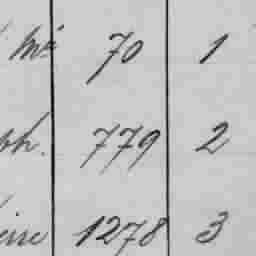 Mᵃ 70 1
ph. 779 2
eirre 1278 3